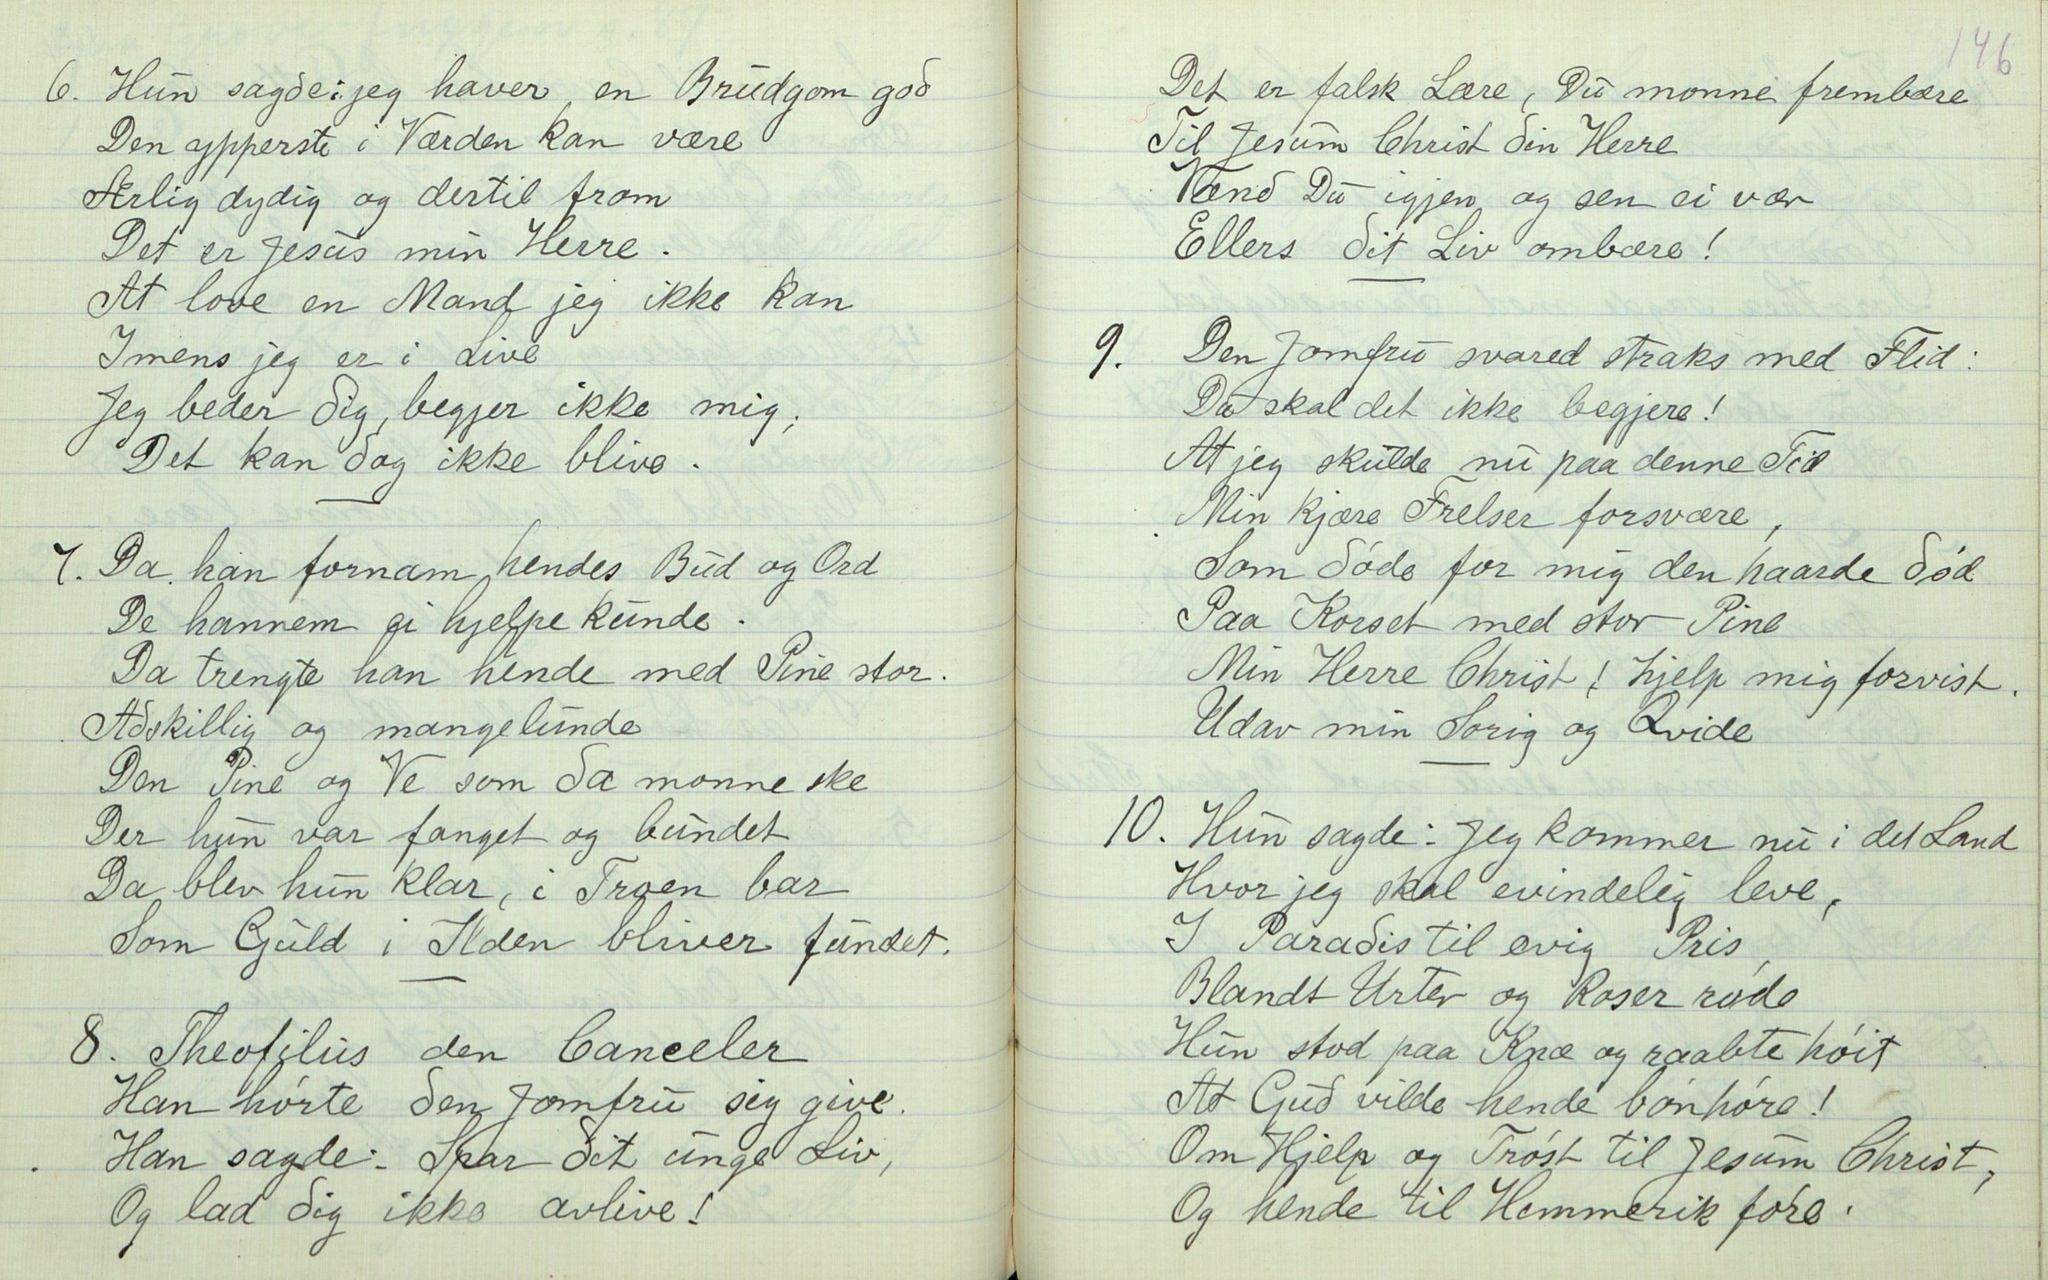 6. Hun sagde: jeg haver en Brudgom god
Den ypperste i Værden kan være
Ærlig dydig og dertil from
Det er Jesus min Herre.
At love en Mand jeg ikke kan
Imens jeg er i Live
Jeg beder dig, begjer ikke mig;
Det kan dog ikke blive.
7. Da han fornam hendes Bud og Ord
De hannem ei hjelpe kunde.
Da trengte han hende med Pine stor.
Adskillig og mangelunde
Den Pine og Ve som da monne ske
Der hun var fanget og bundet
Da blev hun klar, i Troen bar
Som Guld i Ilden bliver fundet.
8. Theofilus den Canceler
Han hórte den Jomfru sig give.
Han sagde: Spar dit unge Liv,
Og lad dig ikke avlive!
146
Det er falsk Lære, Du monne frembære
Til Jesum Christ din Herre
Vend Du igjen og sen ei vær
Ellers dit Liv ombære!
9. Den Jomfru svared straks med Flid:
Du skal det ikke begjere!
At jeg skulde nu paa denne Tid
Min kjære Frelser forsvære,
Som dóde for mig den haarde dód
Paa Korset med stor Pine
Min Herre Christ! hjelp mig forvist.
Udav min Sorig og Qvide
10. Hun sagde: Jeg kommer nu i det Land
Hvor jeg skal evindelig leve,
I Paradis til evig Pris,
Blandt Urter og Roser róde
Hun stod paa Knæ og raabte hóit
At Gud vilde hende bónhóre!
Om Hjelp og Tróst til Jesum Christ,
Og hende til Hemmerik fóre.